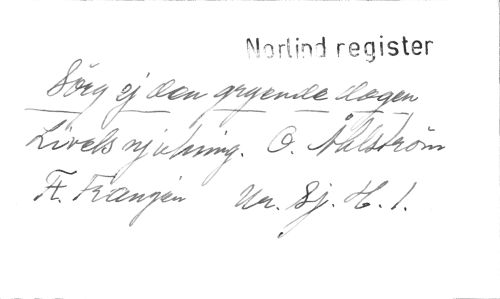 Norlind register
Sörg ej den gryende dagen
Livets njutning. O. Åhlström
F. Franzén Ur. Sj. H. 1.